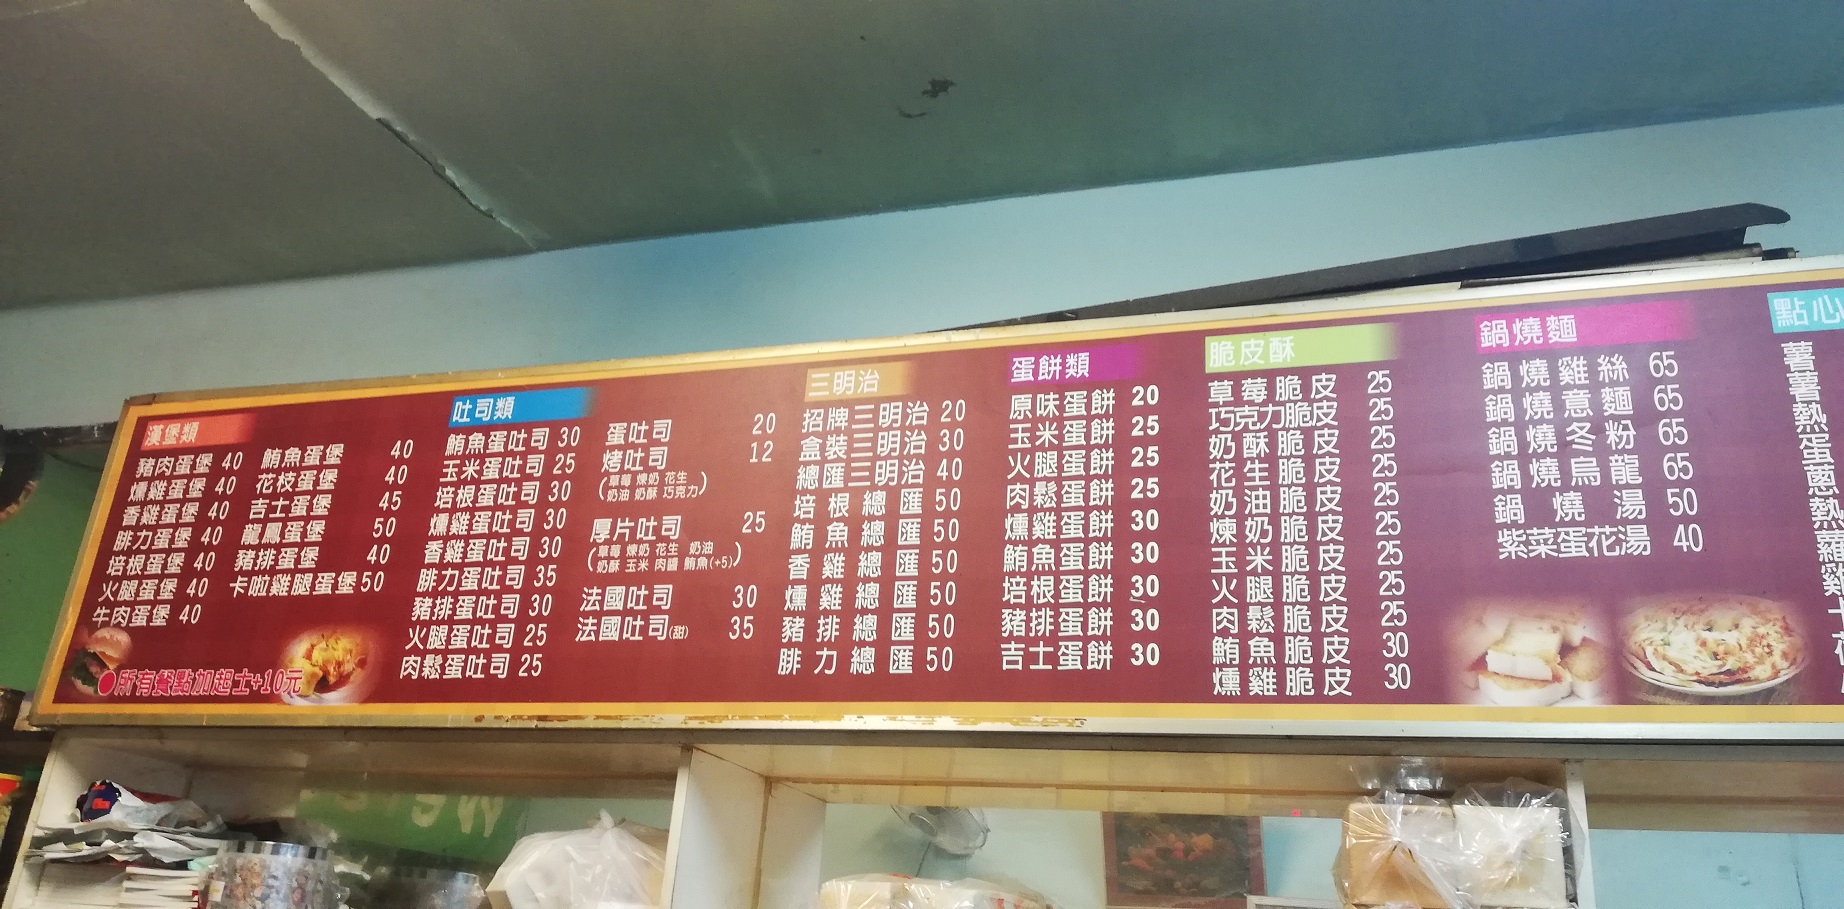 漢堡類
豬肉蛋堡 40
燻雞蛋堡 40
香雞蛋堡 40
腓力蛋堡 40
培根蛋堡 40
火腿蛋堡 40
牛肉蛋堡 40
鮪魚蛋堡 40
花枝蛋堡 40
吉士蛋堡 45
龍鳳蛋堡 50
豬排蛋堡 40
卡啦雞腿蛋堡 50
●所有餐點加起士+10元
吐司類
鮪魚蛋吐司 30
玉米蛋吐司 25
培根蛋吐司 30
燻雞蛋吐司 30
香雞蛋吐司 30
腓力蛋吐司 35
豬排蛋吐司 30
火腿蛋吐司 25
肉鬆蛋吐司 25
蛋吐司 20
烤吐司 12
(草莓 煉奶 花生
奶油 奶酥 巧克力)
厚片吐司 25
(草莓 煉奶 花生 奶油
奶酥 玉米 肉醬 鮪魚(+5))
法國吐司 30
法國吐司(甜) 35
三明治
招牌三明治 20
盒裝三明治 30
總匯三明治 40
培根總匯 50
鮪魚總匯 50
香雞總匯 50
燻雞總匯 50
豬排總匯 50
腓力總匯 50
蛋餅類
原味蛋餅 20
玉米蛋餅 25
火腿蛋餅 25
肉鬆蛋餅 25
燻雞蛋餅 30
鮪魚蛋餅 30
培根蛋餅 30
豬排蛋餅 30
吉士蛋餅 30
脆皮酥
草莓脆皮 25
巧克力脆皮 25
奶酥脆皮 25
花生脆皮 25
奶油脆皮 25
煉奶脆皮 25
玉米脆皮 25
火腿脆皮 25
肉鬆脆皮 25
鮪魚脆皮 30
燻雞脆皮 30
鍋燒麵
鍋燒雞絲 65
鍋燒意麵 65
鍋燒冬粉 65
鍋燒烏龍 65
鍋燒湯 50
紫菜蛋花湯 40
點心
薯
薯
熱
蛋
蔥
熱
蘿
雞